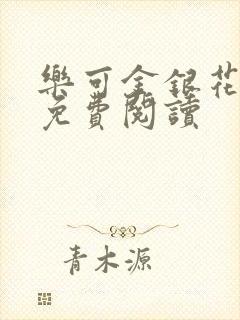 樂可金銀花
免費閱讀
青木源